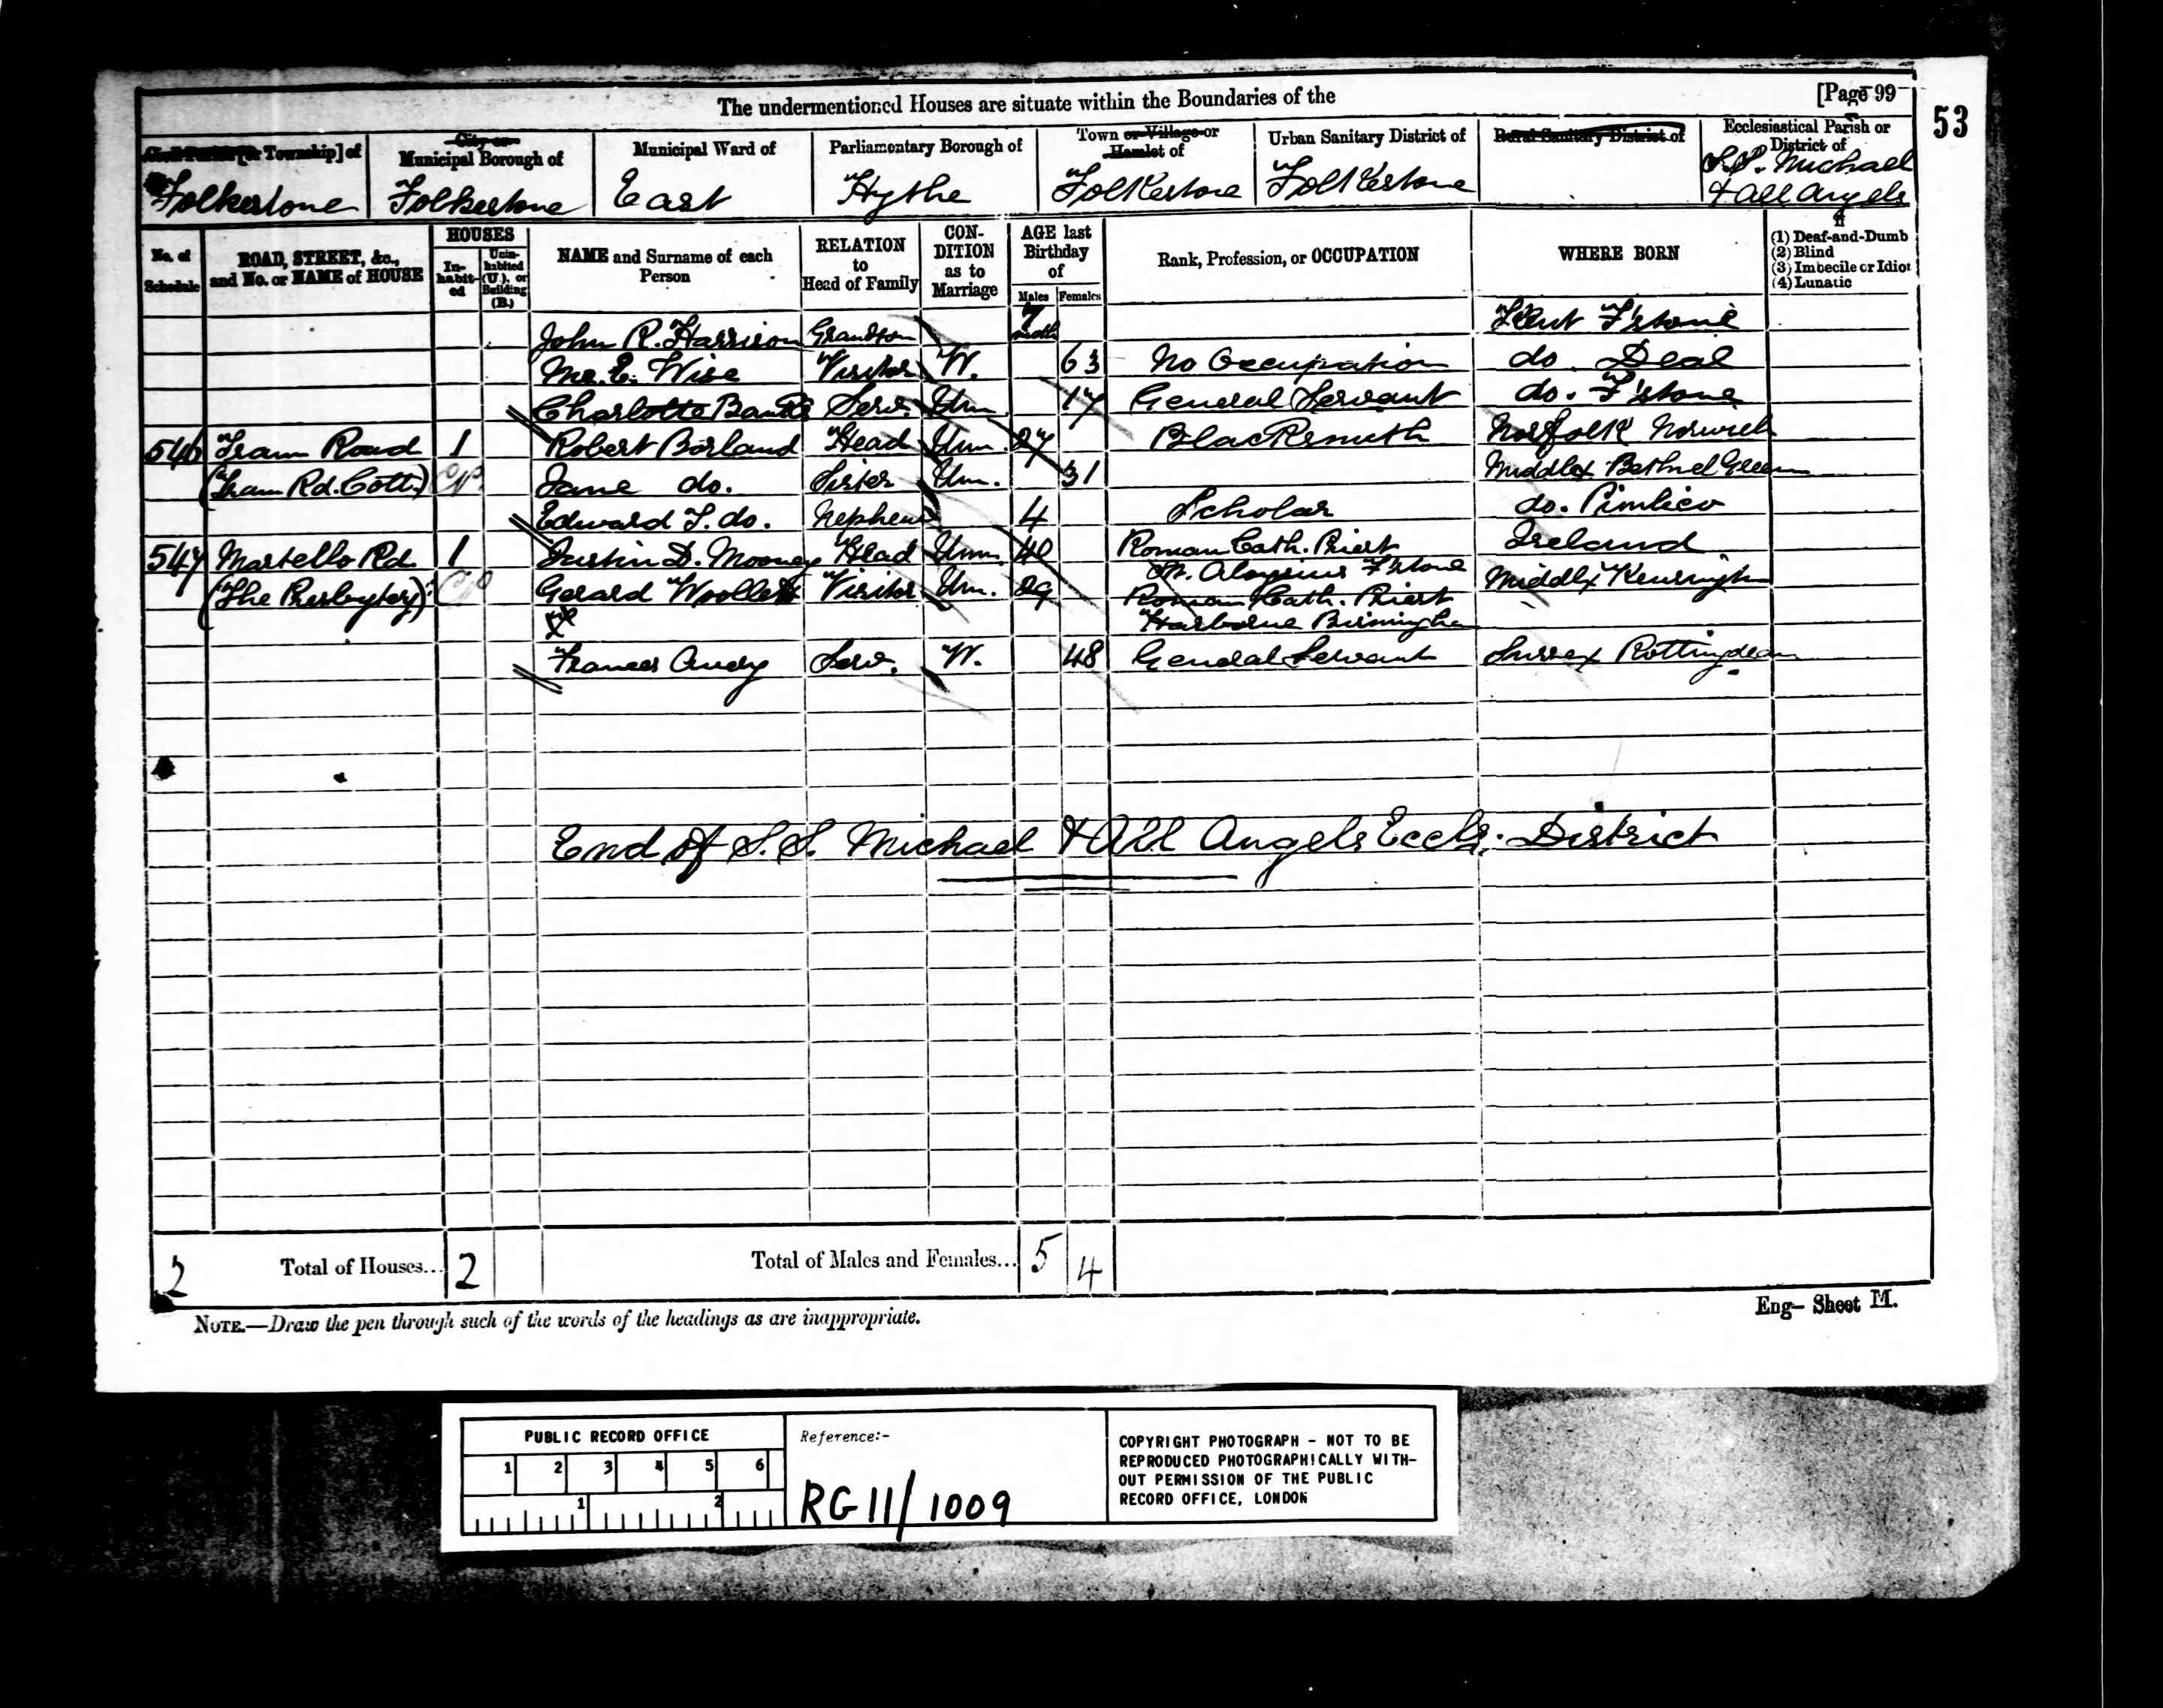 The undermentioned Houses are situate within the Boundaries of the [Page 99
53
Civil Parish [or Township] of
City or Municipal Borough of
Municipal Ward of
Parliamentary Borough of
Town or Village or Hamlet of
Urban Sanitary District of
Rural Sanitary District of
Ecclesiastical Parish or District of
Folkestone
Folkestone
East
Hythe
Folkestone
Folkestone
S.S. Michael
& All Angels
No. of Schedule
ROAD, STREET, &c., and No. or NAME of HOUSE
HOUSES
In-habit-ed
Unin-habited (U.), or Building (B.)
NAME and Surname of each Person
RELATION to Head of Family
CON-DITION as to Marriage
AGE last Birthday of
Males Females
Rank, Profession, or OCCUPATION
WHERE BORN
If
(1) Deaf-and-Dumb
(2) Blind
(3) Imbecile or Idiot
(4) Lunatic
John R. Harrison Grandson 7 mths Kent F'stone
E. Wise Visitor W. 63 No Occupation do. Deal
Charlotte Serv. Um. 17 General Servant do. F'stone
546 Tram Road 1 Robert Borland Head Unm. 27 Blacksmith Norfolk Norwich
(Tram Rd. Cott.) Jane do. Sister Um. 31 Middlx Bethnel Green
Edward T. do. Nephew 4 Scholar do. Pimlico
547 Martello Rd. 1 Justin D. Mooney Head Unm. 40 Roman Cath. Priest Ireland
St. Aloysius F'stone
(The Presbytery) Gerard Woollett Visitor Um. 29 Roman Cath. Priest Middlx Kensington
Harborne Birmingham
Frances Serv. W. 48 General Servant Sussex Rottingdean
End of S.S. Michael & All Angels Eccls. District
2 Total of Houses... 2 Total of Males and Females... 5 4
NOTE.—Draw the pen through such of the words of the headings as are inappropriate.
Eng- Sheet M.
PUBLIC RECORD OFFICE
1 2 3 4 5 6
1 2
Reference:-
RG 11/1009
COPYRIGHT PHOTOGRAPH - NOT TO BE
REPRODUCED PHOTOGRAPHICALLY WITH-
OUT PERMISSION OF THE PUBLIC
RECORD OFFICE, LONDON